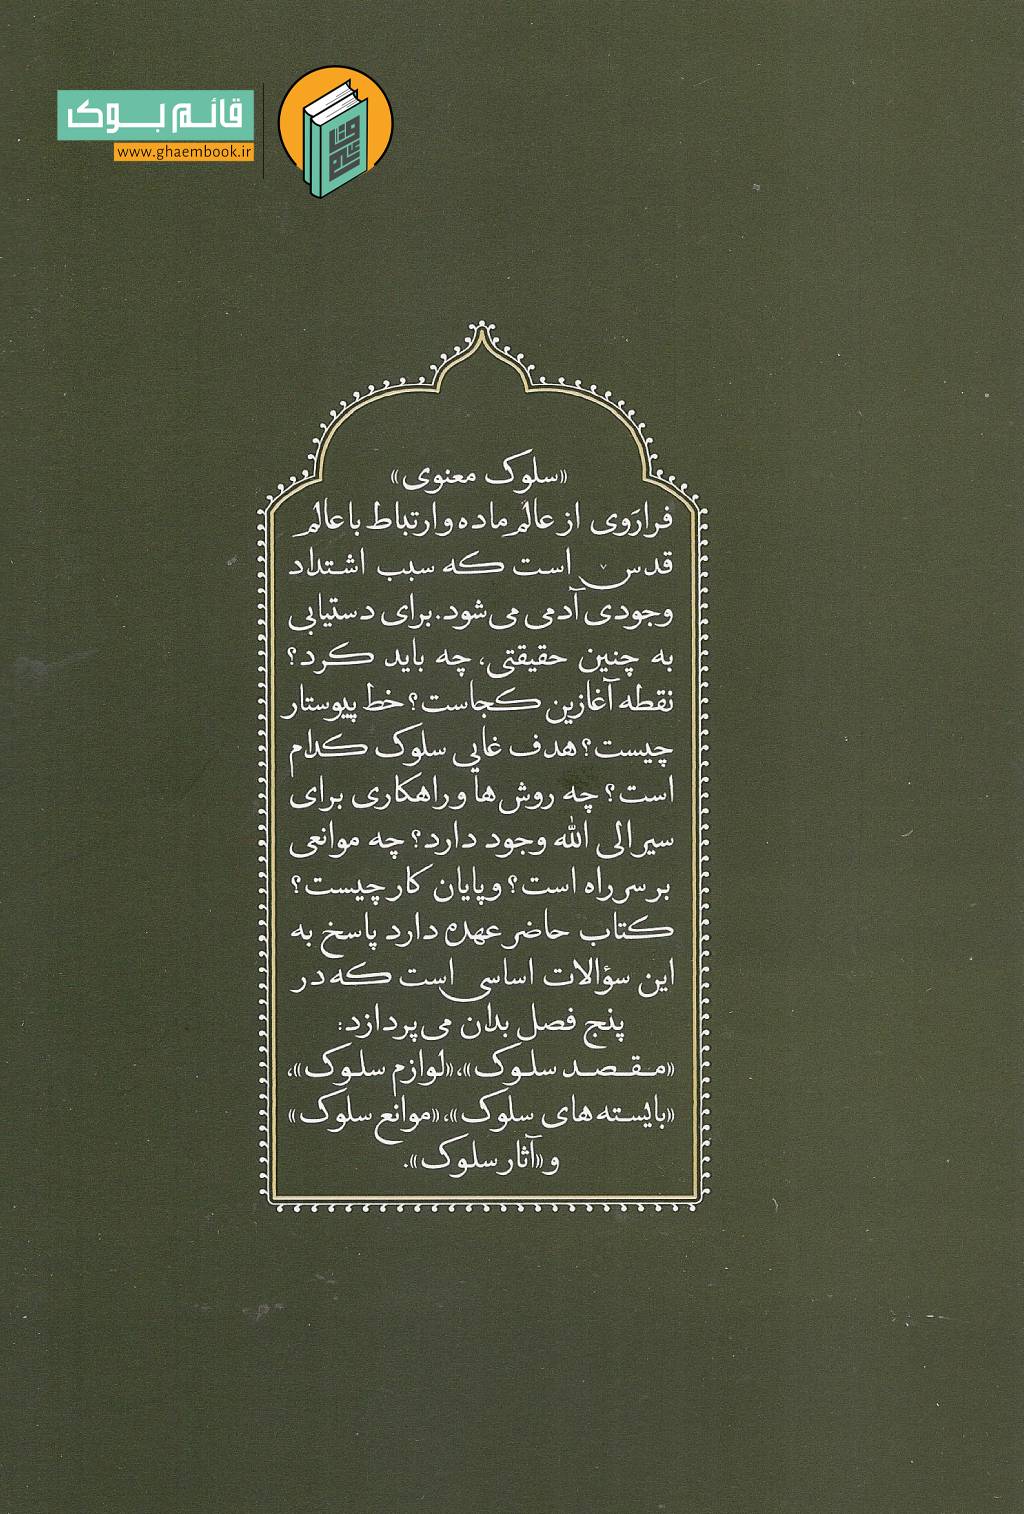 قائم بوک
www.ghaembook.ir
«سلوک معنوی»
فرارَوی از عالم ماده و ارتباط با عالم
قدس است که سبب اشتداد
وجودی آدمی می‌شود. برای دستیابی
به چنین حقیقتی، چه باید کرد؟
نقطه آغازین کجاست؟ خط پیوستار
چیست؟ هدف غایی سلوک کدام
است؟ چه روش‌ها و راهکاری برای
سیر الی الله وجود دارد؟ چه موانعی
بر سر راه است؟ و پایان کار چیست؟
کتاب حاضر عهده دارد پاسخ به
این سؤالات اساسی است که در
پنج فصل بدان می‌پردازد:
«مقصد سلوک»، «لوازم سلوک»،
«بایسته های سلوک»، «موانع سلوک»
و «آثار سلوک».